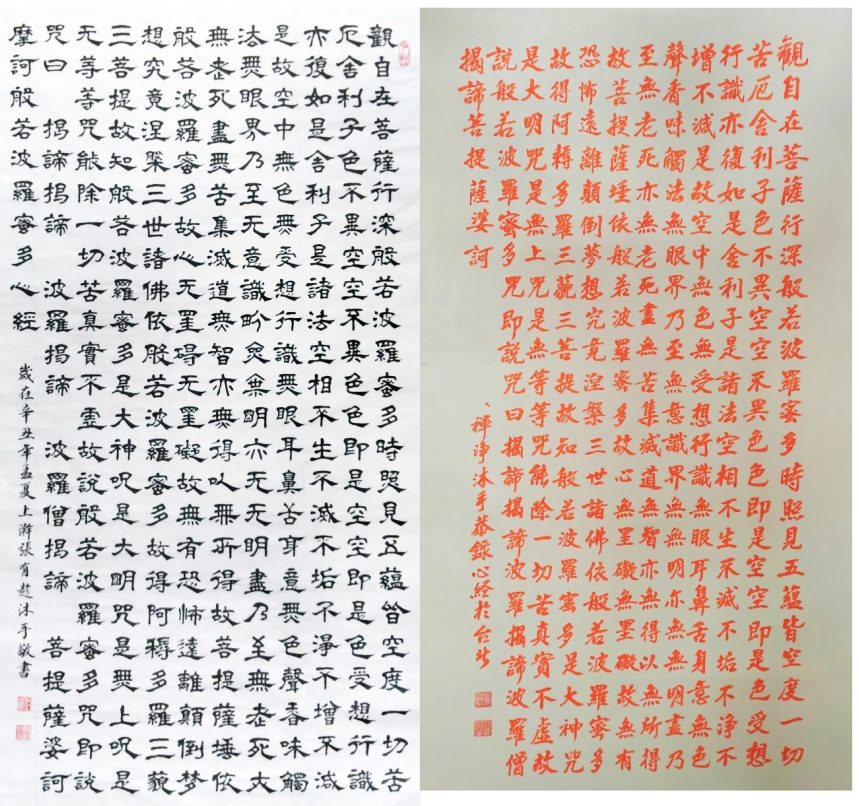 觀自在菩薩行深般若波羅蜜多時照見五蘊皆空度一切苦
厄舍利子色不異空空不異色色即是空空即是色受想行識
亦復如是舍利子是諸法空相不生不滅不垢不淨不增不減
是故空中無色無受想行識無眼耳鼻舌身意無色聲香味觸
法無眼界乃至无意識畍無無明亦无无明盡乃至無老死亦
無老死盡無苦集滅道無智亦無得以無所得故菩提薩埵依
般若波羅蜜多故心无罣碍无罣礙故無有恐怖遠離顛倒梦
想究竟涅槃三世諸佛依般若波羅蜜多故得阿耨多羅三藐
三菩提故知般若波羅蜜多是大神呪是大明咒是無上呪是
无等等咒能除一切苦真實不虛故說般若波羅蜜多咒即說
咒曰 揭諦揭諦 波羅揭諦 波羅僧揭諦 菩提薩婆訶
摩訶般若波羅蜜多心經
歲在辛丑年孟夏上澣張有沐手敬書
觀自在菩薩行深般若波羅蜜多時照見五蘊皆空度一切
苦厄舍利子色不異空空不異色色即是空空即是色受想
行識亦復如是舍利子是諸法空相不生不滅不垢不淨不
增不減是故空中無色無受想行識無眼耳鼻舌身意無色
聲香味觸法無眼界乃至無意識界無無明亦無無明盡乃
至無老死亦無老死盡無苦集滅道無智亦無得以無所得
故菩提薩埵依般若波羅蜜多故心無罣礙無罣礙故無有
恐怖遠離顛倒夢想究竟涅槃三世諸佛依般若波羅蜜多
故得阿耨多羅三藐三菩提故知般若波羅蜜多是大神咒
是大明咒是無上咒是無等等咒能除一切苦真實不虛故
說般若波羅蜜多咒即說咒曰揭諦揭諦波羅揭諦波羅僧
揭諦菩提薩婆訶
禪淨沐手恭錄心經於台北